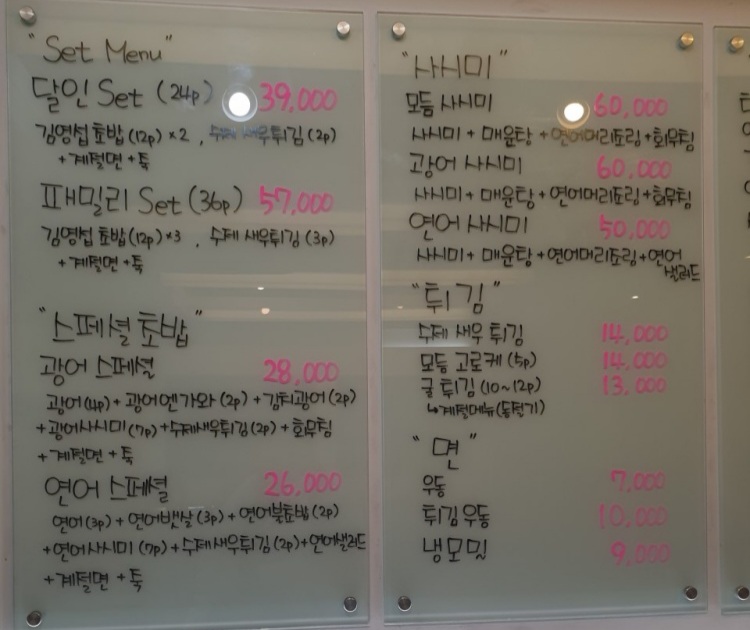 "Set Menu"
달인 Set (24p) 39,000
김영섭 초밥(12p)×2 , 수제 새우튀김(2p)
+계절면+툭
패밀리 Set (36p) 57,000
김영섭 초밥(12p)×3 , 수제 새우튀김(3p)
+계절면+툭
"스페셜 초밥"
광어 스페셜 28,000
광어(4p)+광어엔가와(2p)+김치광어(2p)
+광어사시미(7p)+수제새우튀김(2p)+회무침
+계절면+툭
연어 스페셜 26,000
연어(3p)+연어뱃살(3p)+연어불초밥(2p)
+연어사시미(7p)+수제새우튀김(2p)+연어샐러드
+계절면+툭
"사시미"
모듬 사시미 60,000
사시미+매운탕+연어머리조림+회무침
광어 사시미 60,000
사시미+매운탕+연어머리조림+회무침
연어 사시미 50,000
사시미+매운탕+연어머리조림+연어
샐러드
"튀김"
수제 새우 튀김 14,000
모듬 고로케(5p) 14,000
굴 튀김(10~12p) 13,000
↳계절메뉴(동절기)
"면"
우동 7,000
튀김우동 10,000
냉모밀 9,000